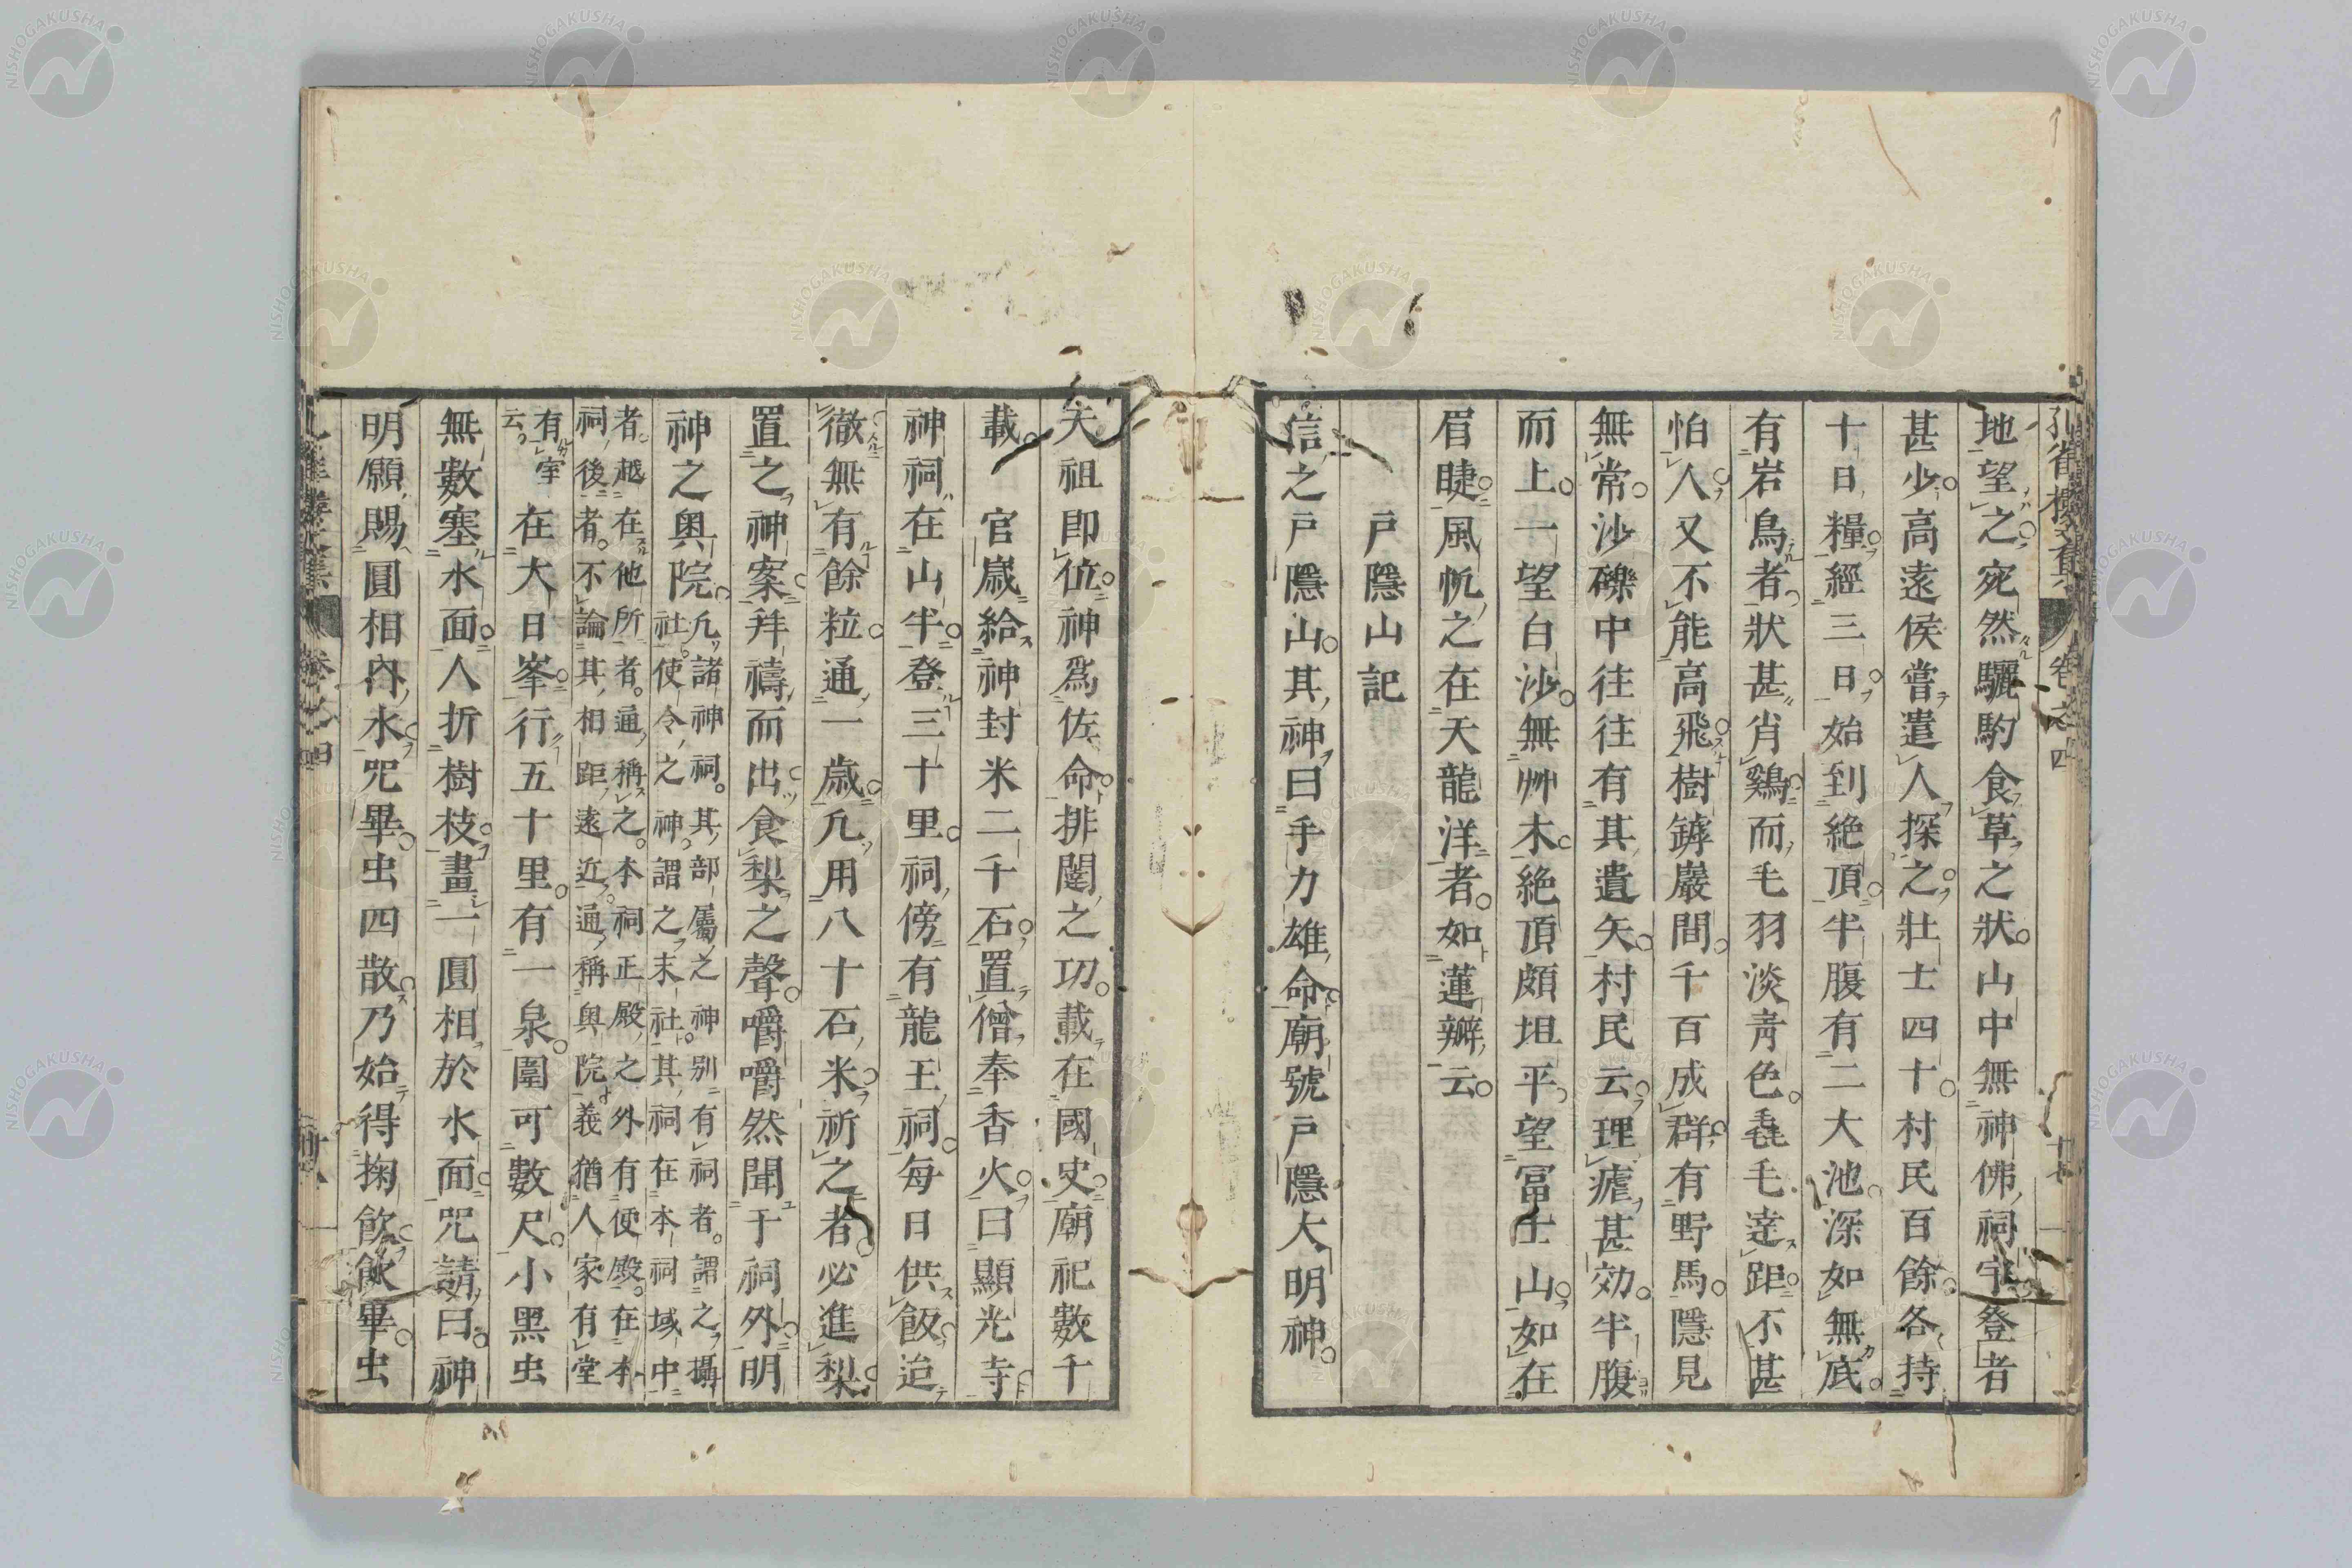 地望之宛然驪駒食草之狀。山中無神佛祠宇登者
甚少。高遠侯嘗遣人探之。壯士四十。村民百餘。各持
十日糧。經三日。始到絕頂。半腹有二大池。深如無底。
有岩鳥者。狀甚肖鷄。而毛羽淡青色。毳毛達距。不甚
怕人。又不能高飛。樹罅巖間。千百成群。有野馬。隱見
無常。沙礫中往往有其遺矢。村民云。理瘧甚効。半腹
而上。一望白沙。無艸木。絕頂頗坦平。望冨士山。如在
眉睫。風帆之在天龍洋者。如蓮瓣云。
戸隱山記
信之戸隱山。其神曰手力雄命。廟號戸隱大明神。
天祖即位。神爲佐命。排闥之功。載在國史。廟祀數千
載。官歲給神封米二千石。置僧奉香火。曰顯光寺
神祠在山半。登三十里。祠傍有龍王祠。每日供飯。迨
徹無有餘粒。通一歲。凢用八十石米。祈之者。必進梨。
置之神案。拜禱而出。食梨之聲。嚼嚼然聞于祠外。明
神之奥院。
凢諸神祠。其部屬之神别有祠者。謂之攝
社。使令之神。謂之末社。其祠在本祠域中
者。越在他所者。通稱之。本祠正殿之外有便殿。在本
祠後者。不論其相距遠近。通稱奥院。義猶人家有堂
有室
云。
在大日峯。行五十里。有一泉。圍可數尺。小黑虫
無數塞水面。人折樹枝。畫一圓相於水面。咒請曰。神
明願賜圓相內水。咒畢。虫四散。乃始得掬飲。飲畢。虫
卷之四